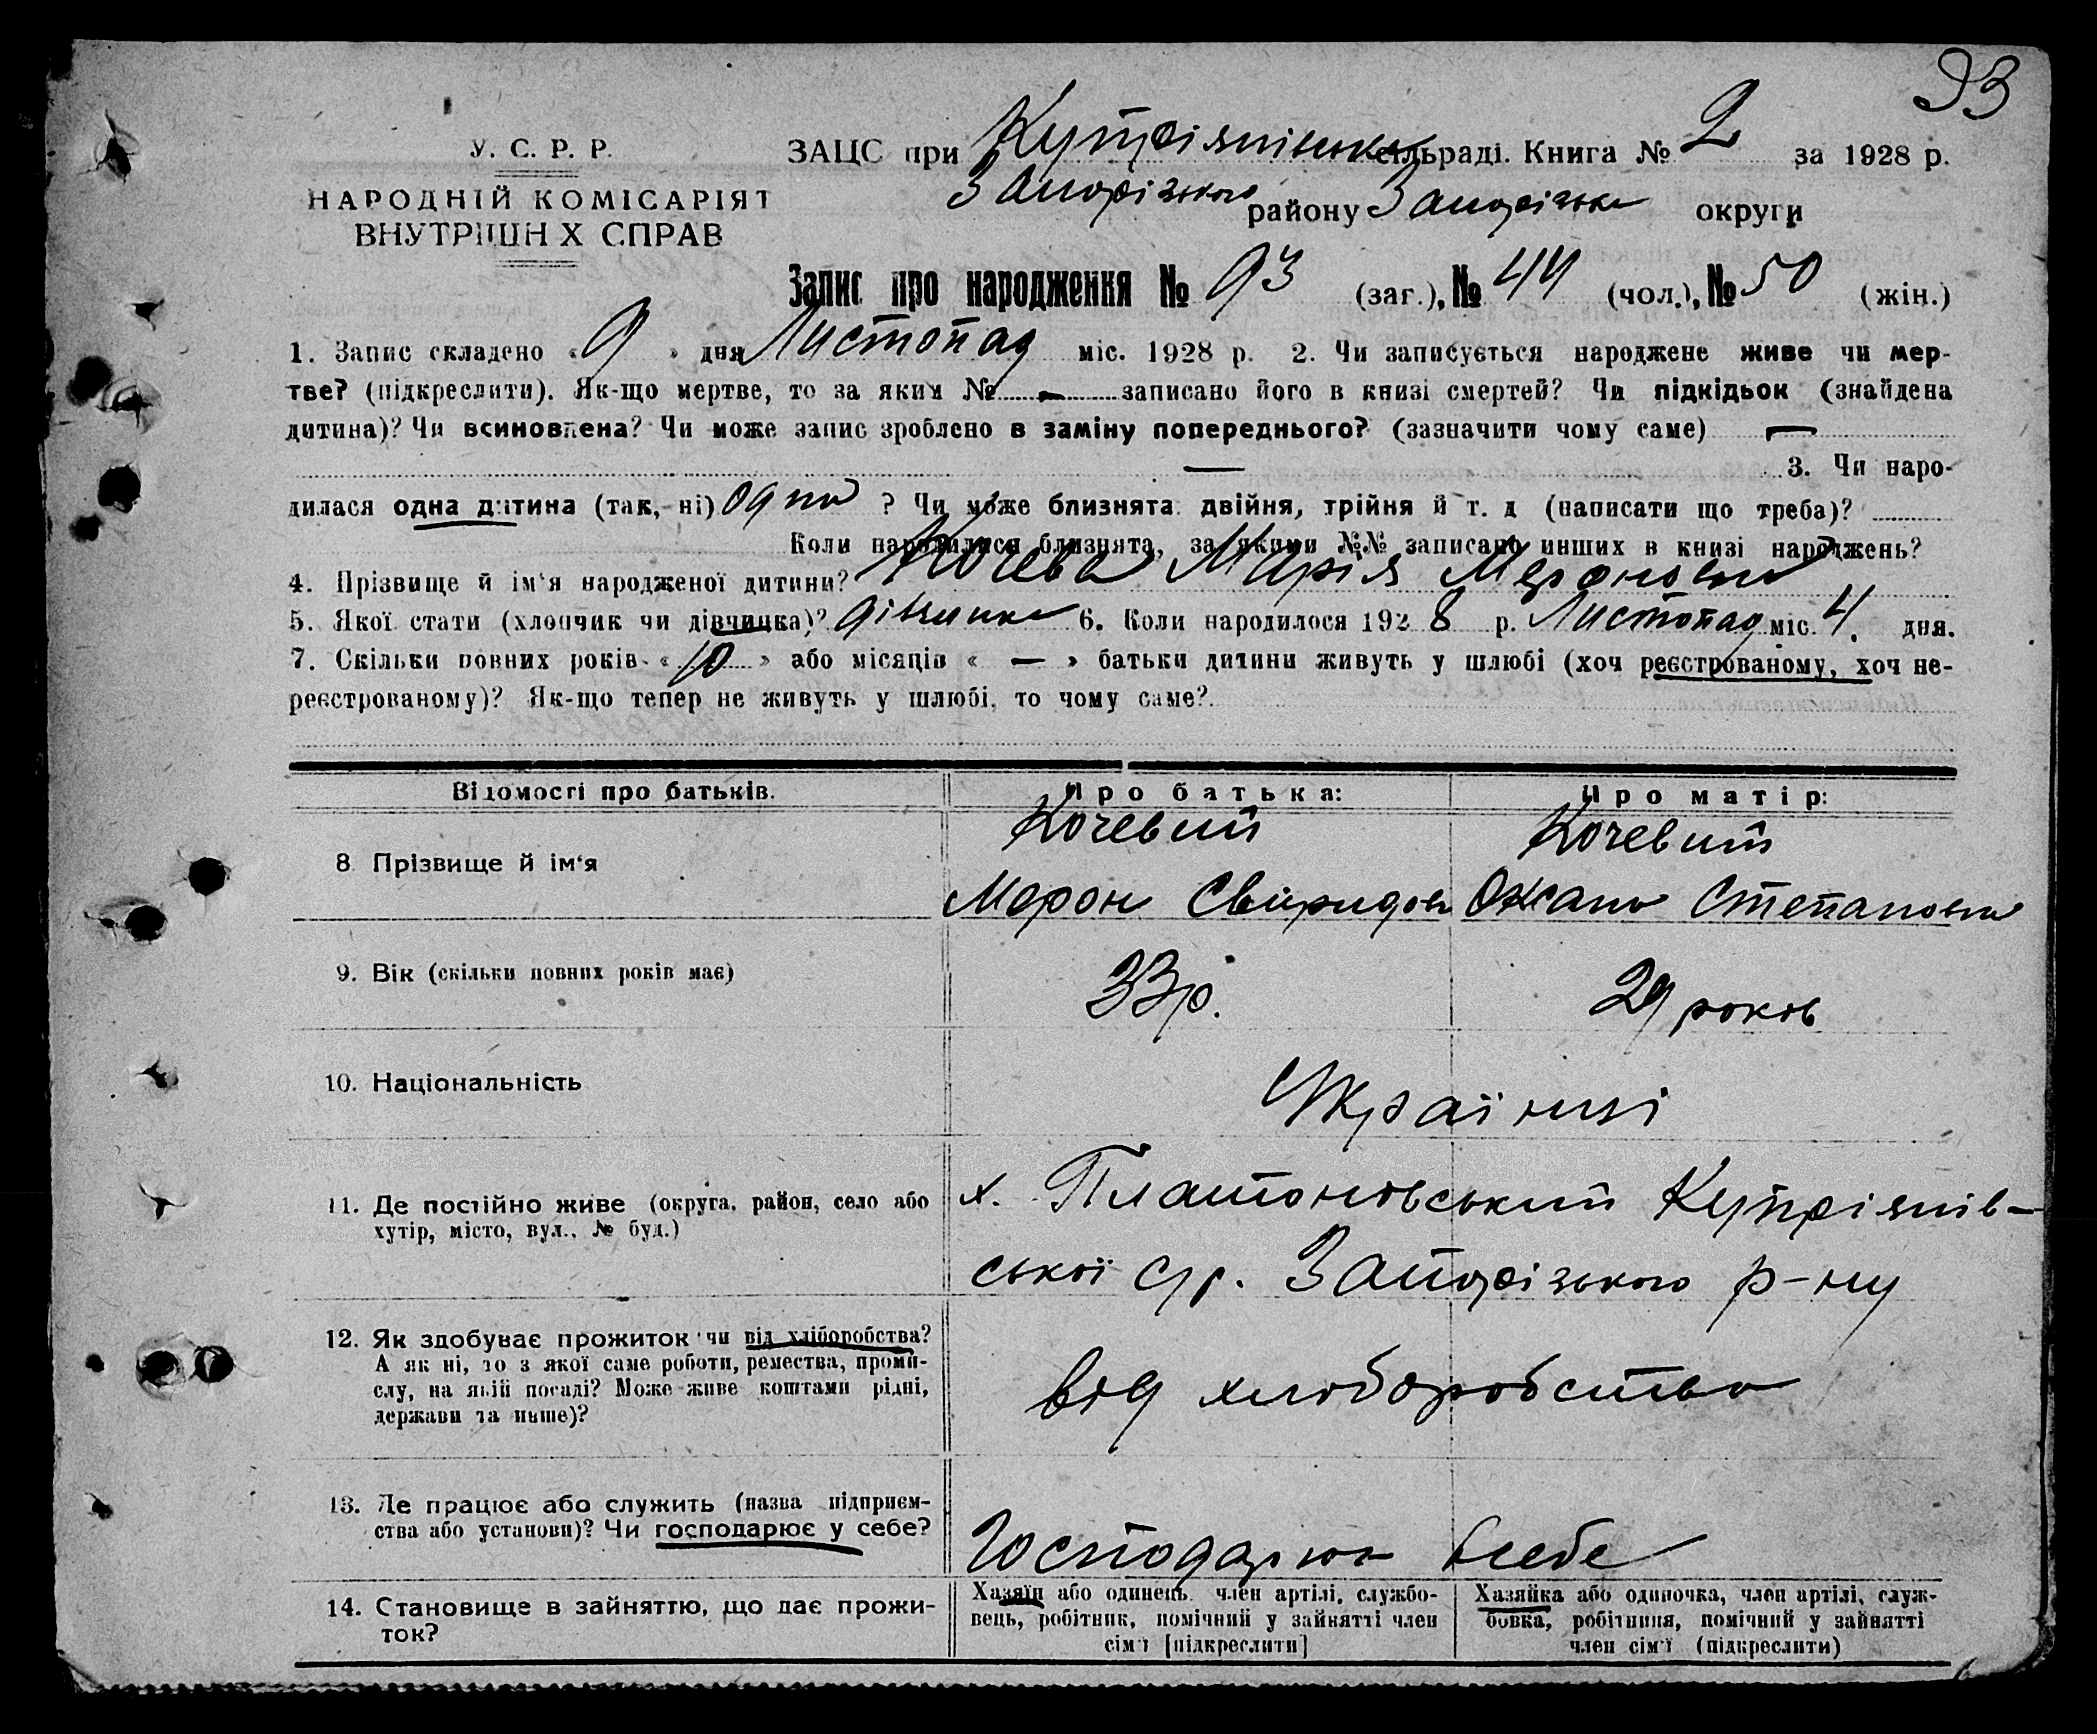 93
У. С. Р. Р.
НАРОДНІЙ КОМІСАРІЯТ
ВНУТРІШН Х СПРАВ
ЗАЦС при Купріянівська сільраді. Книга № 2 за 1928 р.
Запорізького району Запорізька округи
Запис про народження № 93 (заг.), № 44 (чол.), № 50 (жін.)
1. Запис складено « 9 » дня Листопад міс. 1928 р. 2. Чи записується народжене живе чи мер-
тве? (підкреслити). Як-що мертве, то за яким № — записано його в книзі смертей? Чи підкідьок (знайдена
дитина)? Чи всиновлена? Чи може запис зроблено в заміну попереднього? (зазначити чому саме) —
— 3. Чи наро-
дилася одна дитина (так, ні) одна ? Чи може близнята: двійня, трійня й т. д (написати що треба)?
Коли народилися близнята, за якими №№ записано инших в книзі народжень?
4. Прізвище й ім'я народженої дитини? Кочева Марія Мероновна
5. Якої стати (хлопчик чи дівчинка)? дівчинка 6. Коли народилося 192 8 р. Листопад міс. 4. дня.
7. Скільки повних років « 10 » або місяців « — » батьки дитини живуть у шлюбі (хоч реєстрованому, хоч не-
реєстрованому)? Як-що тепер не живуть у шлюбі, то чому саме?
Відомості про батьків.
Про батька:
Про матір:
8 Прізвище й ім'я
Кочевий
Мерон Свіридов
Кочевий
Оксана Степановна
9. Вік (скільки повних років має)
33 р.
29 роков
10. Національність
Українці
11. Де постійно живе (округа, район, село або
хутір, місто, вул., № буд.)
х. Платоновський Купріянів-
ської с/р. Запорізького р-ну
12. Як здобуває прожиток чи від хліборобства?
А як ні, то з якої саме роботи, ремества, проми-
слу, на якій посаді? Може живе коштами рідні,
держави та инше)?
від хлоборобства
13. Де працює або служить (назва підприєм-
ства або установи)? Чи господарює у себе?
Господарюю всебе
14. Становище в зайняттю, що дає прожи-
ток?
Хазяїн або одинець член артілі, службо-
вець, робітник, помічний у зайнятті член
сім'ї [підкреслити]
Хазяйка або одиночка, член артілі, служ-
бовка, робітниця, помічний у зайнятті
член сім'ї (підкреслити)